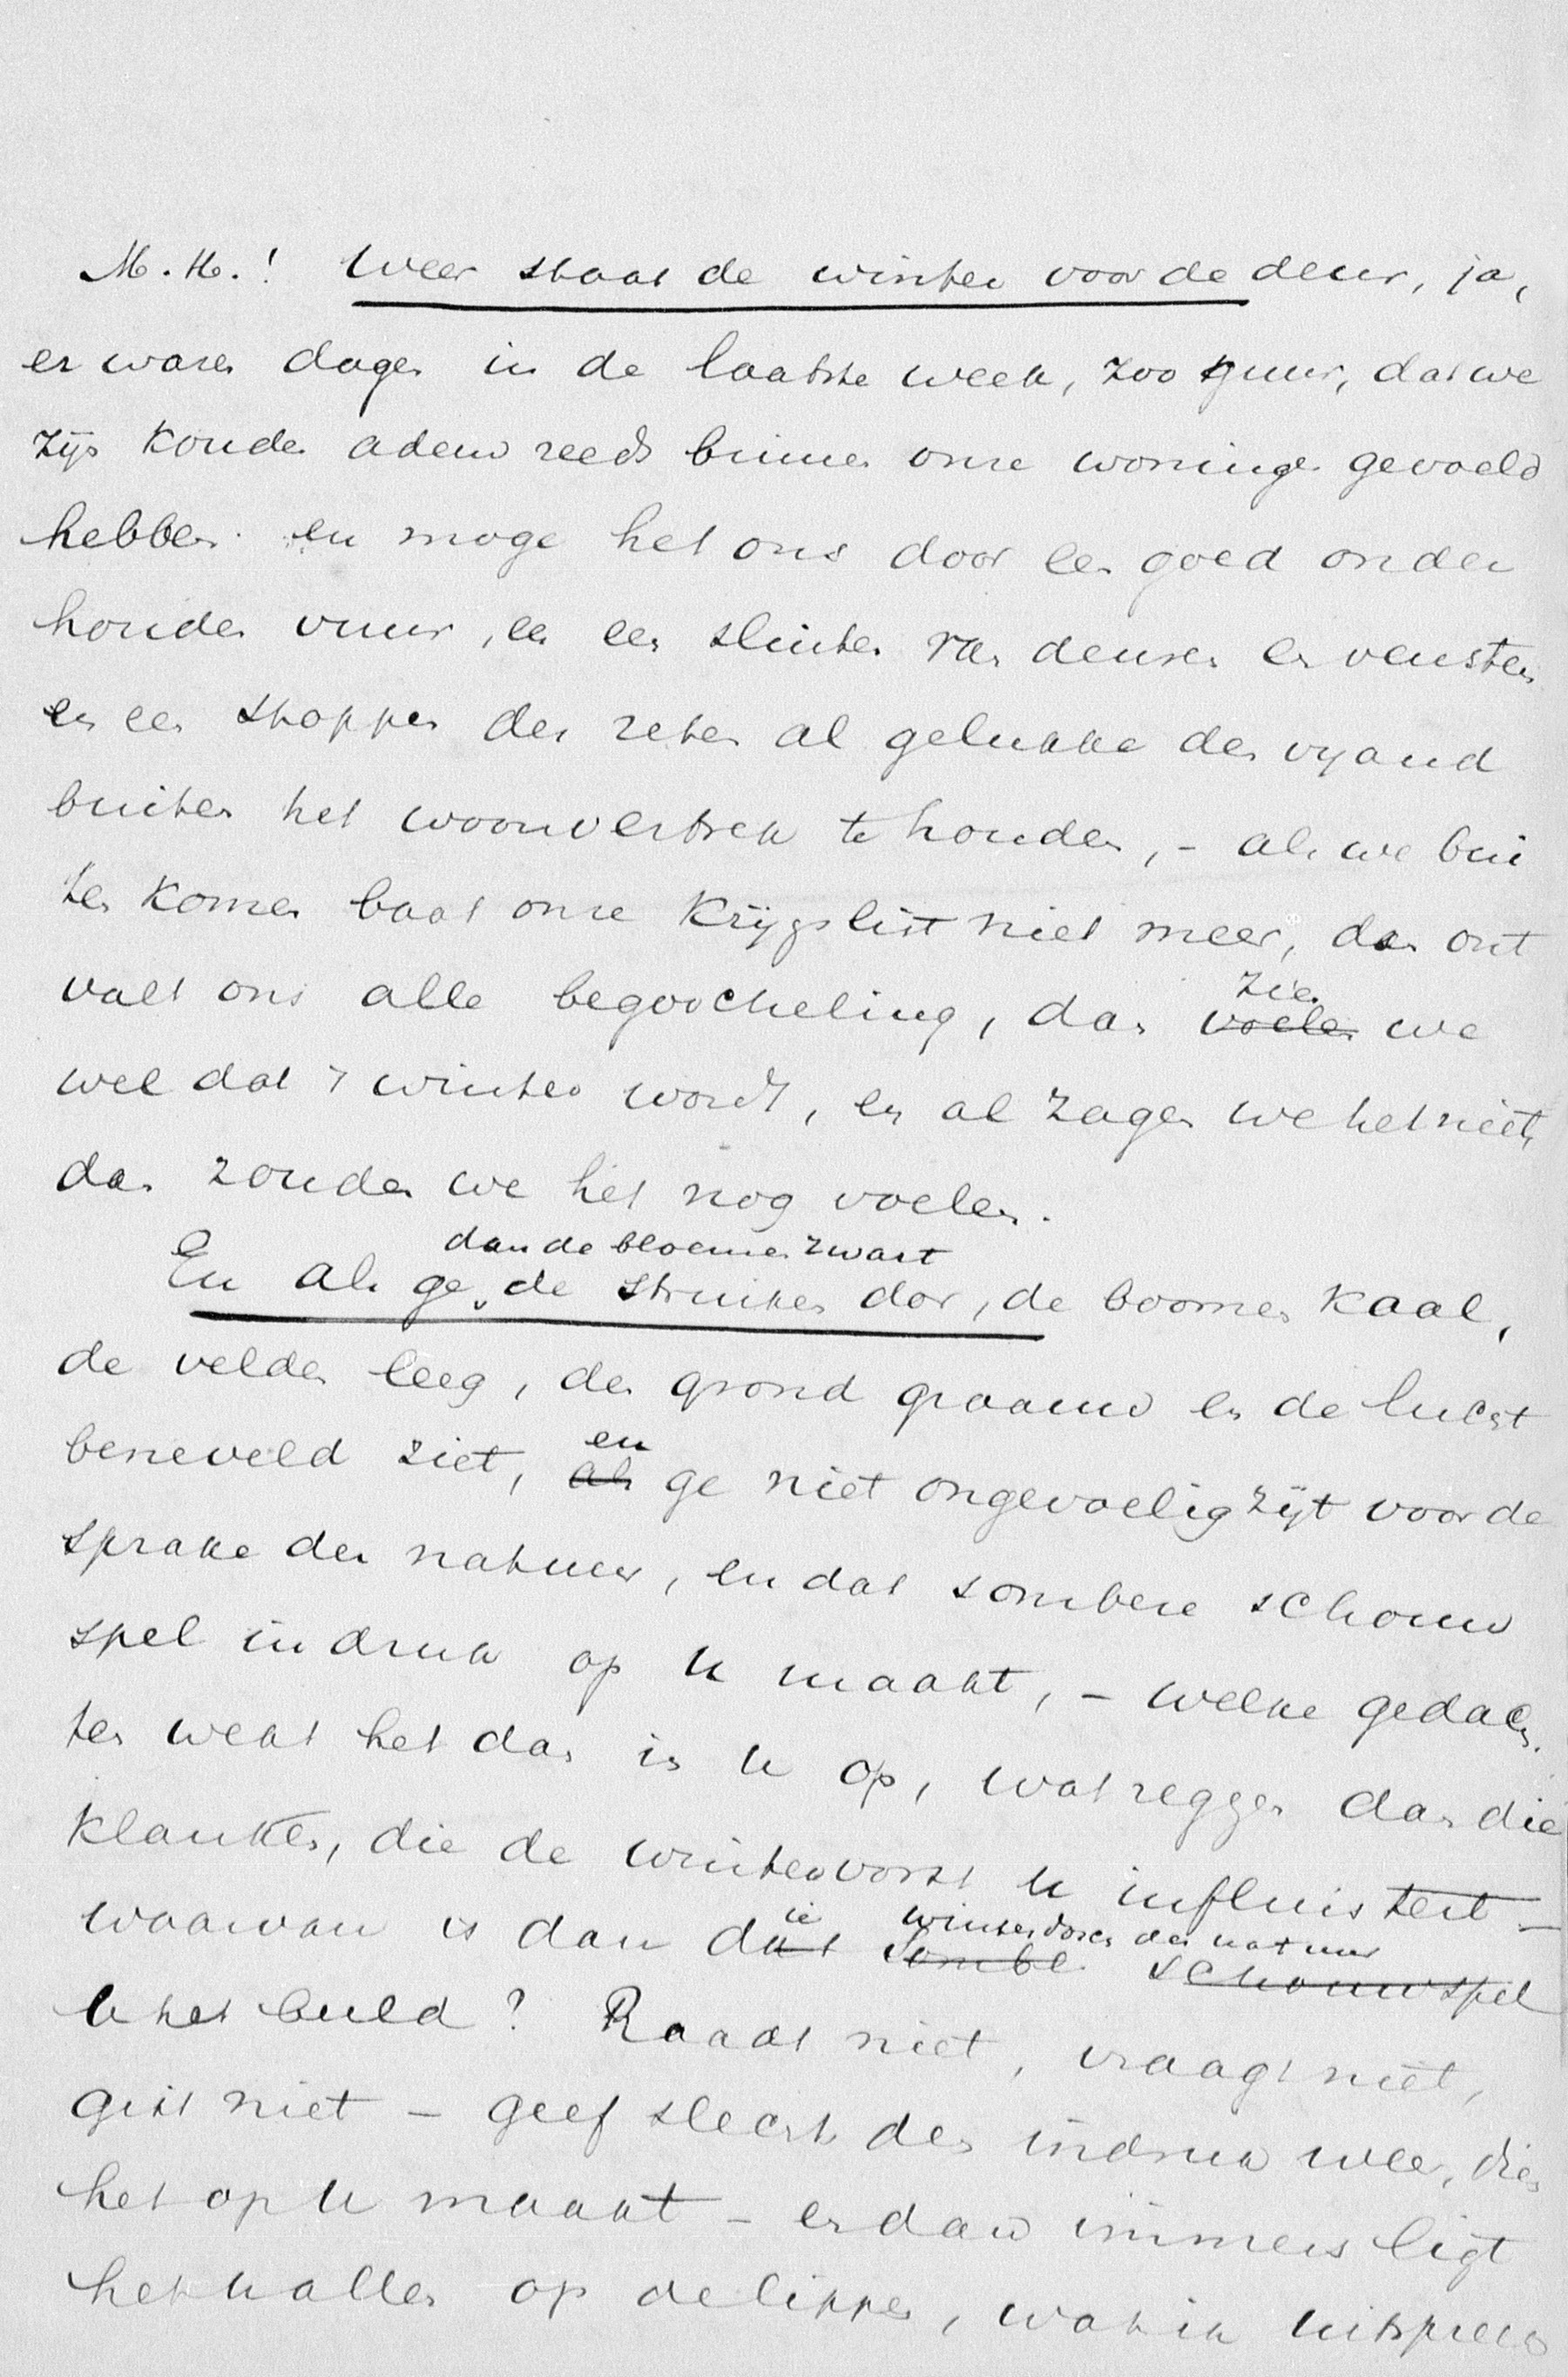 M. H.! Weer staat de winter voor de deur, ja,
er waren dagen in de laatste week, zoo guur, dat we
zijn kouden adem reeds binnen onze woningen gevoeld
hebben. en moge het ons door een goed onder
houden vuur, en een sluiten van deuren en vensters
en een stoppen der reten al gelukke den vijand
buiten het woonvertrek te houden, - als we bui
ten komen baat onze krijgslist niet meer, dan ont
valt ons alle begoocheling, dan voelen zien we
wel dat 't winter wordt, en al zagen we het niet,
dan zouden we het nog voelen.
dan de bloemen zwart
En als ge de struiken dor, de boomen kaal,
de velden leeg, den grond graauw en de lucht
beneveld ziet, als en ge niet ongevoelig zijt voor de
sprake der natuur, en dat sombere schouw
spel indruk op u maakt, - welke gedach
ten wekt het dan in u op, wat zeggen dan die
klanken, die de wintervorst u influistert -
ie winterdosch der natuur
waarvan is dan dat sombe schouwspel
u het beeld? Raadt niet, vraagt niet,
gist niet - geef slechts den indruk weer, dien
het op u maakt - en dan immers ligt
het u allen op de lippen, wat ik uitspreek